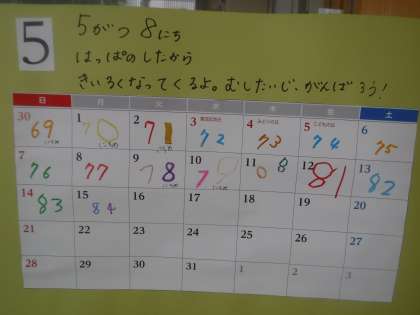 5
5がつ 8にち
はっぱのしたから
きいろくなってくるよ。むしたいじ、がんばろう!
日 月 火 水 木 金 土
30 1 2 3 4 5 6
69 70 71 72 73 74 75
7 8 9 10 11 12 13
76 77 78 79 80 81 82
14 15 16 17 18 19 20
83 84
21 22 23 24 25 26 27
28 29 30 31 1 2 3